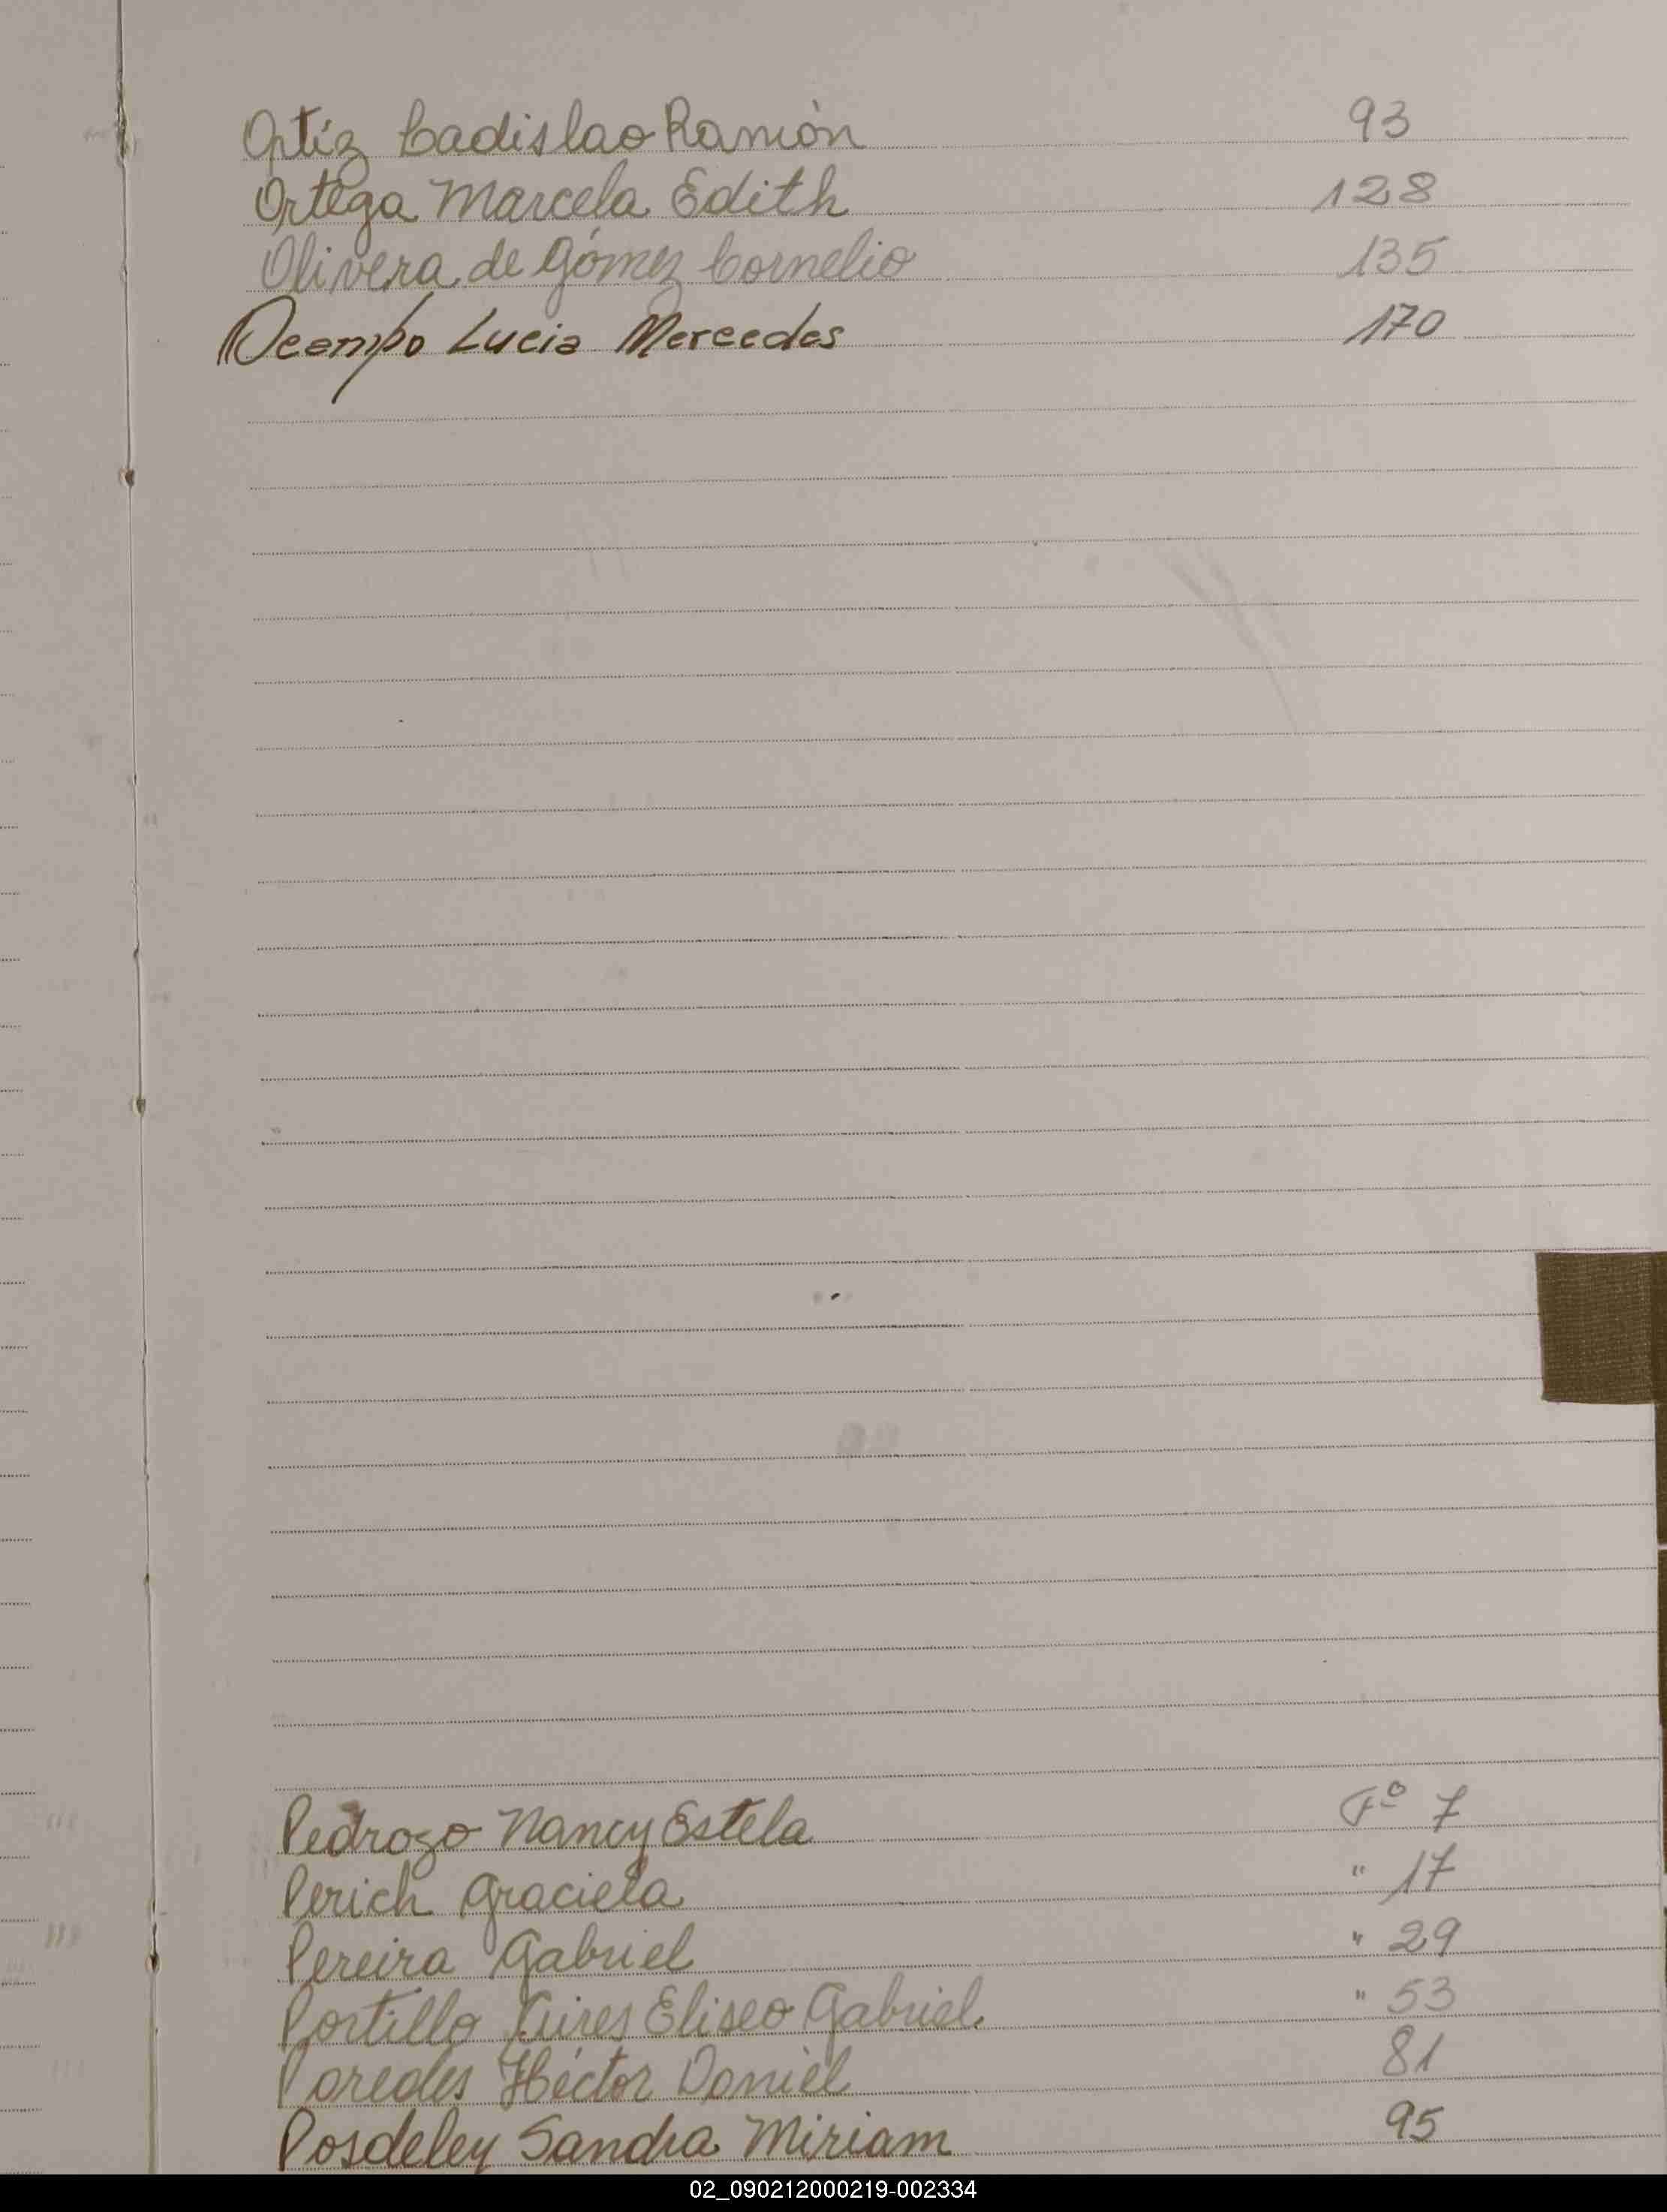 Ortiz Ladislao Ramón 93
Ortega Marcela Edith 128
Olivera de Gómez Cornelio 135
Ocampo Lucia Mercedes 170
Pedrozo Nancy Estela Fº 7
Perich Graciela " 17
Pereira Gabriel " 29
Portillo Eliseo Gabriel. " 53
Paredes Héctor Daniel 81
Posdeley Sandra Miriam 95
02_090212000219-002334